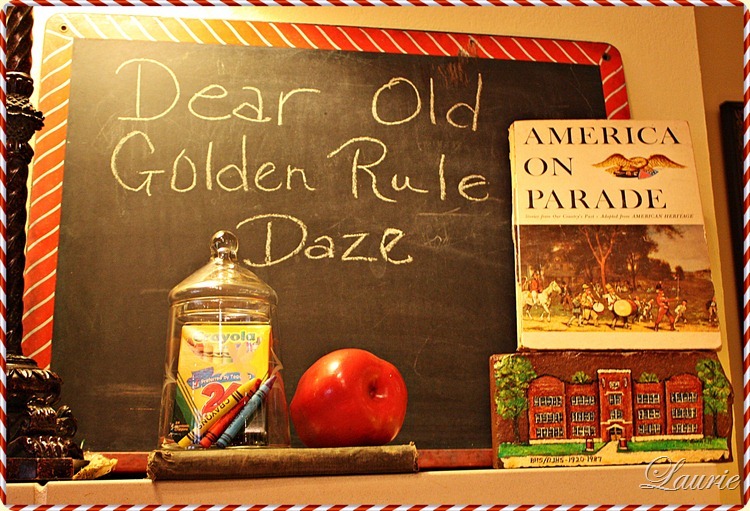 Dear Old
Golden Rule
Daze
AMERICA
ON
PARADE
Stories from Our Country's Past • Adapted from AMERICAN HERITAGE
Crayola
24
CRAYONS
1920-1987
Laurie